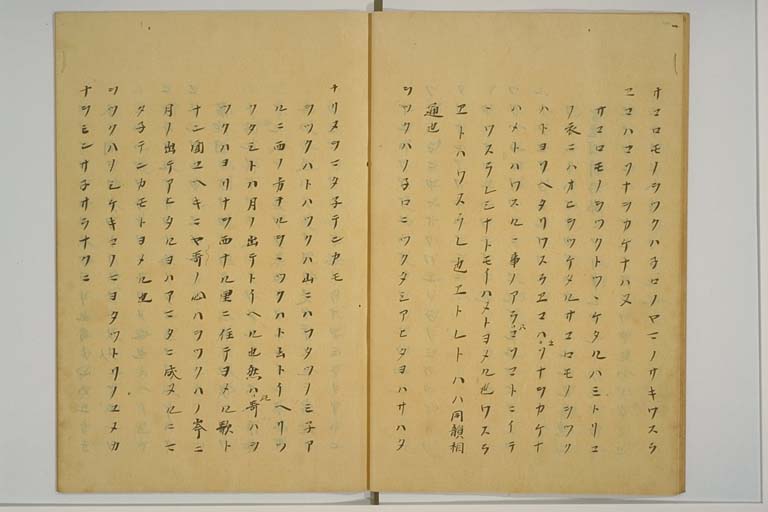 サコロモノヲツクハ子ロノヤマノサキワスラ
ヱコハコソナヲカケナハメ
サコロモノヲツクトツヽケタルハミトリコ
ノ衣ニハオヒヲツケタルサコロモノヲツク
ハトヨソヘタリワスラヱコハコソナヲカケナ
ハメトハワスルヽ事ノアラハコソコトニイテ
ヽワスラレミナトモイハメトヨメル也ワスラ
ヱトハワスラレ也ヱトレトハ同韻相
通也
ヲツクハノ子ロニツクタシアヒタヨハサハタ
ナリヌヲマタ子テンカモ
ヲツクハトハツクハ山ニハフタツノミ子ア
ルニ西ノ方ナルヲヲツクハト云トイヘリツ
クタシトハ月ノ出テトイヘル也然ハ此哥ハヲ
ツクハヨリナヲ西ナル里ニ住テヨメル歌ト
ナン聞エヘキニヤ哥ノ心ハヲツクハノ峯ニ
月ノ出テアヒタルヨハアマタニ成ヌルニマ
タ子テンカモトヨメル也
ヲツクハノシケキコノマヨタツトリノメユカ
ナヲミンサ子サラナクニ